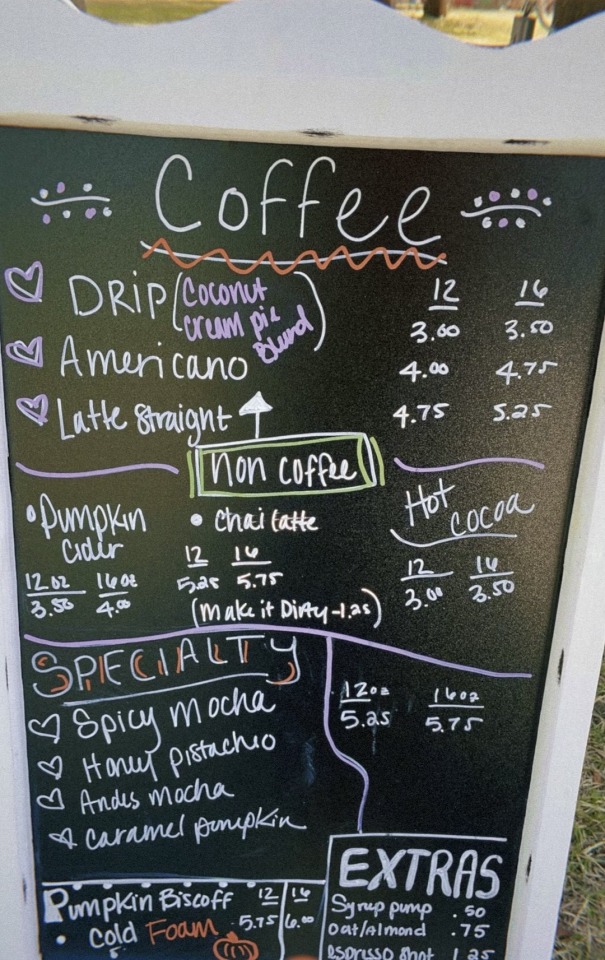 Coffee
12 16
DRIP (Coconut Cream pie Blend) 3.00 3.50
Americano 4.00 4.75
Latte Straight 4.75 5.25
non coffee
• Pumpkin Cider
12oz 16oz
3.50 4.00
• Chai latte
12 16
5.25 5.75
(make it Dirty - 1.25)
Hot cocoa
12 16
3.00 3.50
SPECIALTY
12oz 16oz
5.25 5.75
Spicy mocha
Honey pistachio
Andes mocha
caramel pumpkin
Pumpkin Biscoff 12 16
• cold Foam 5.75 6.00
EXTRAS
Syrup pump .50
oat/Almond .75
espresso shot 1.25